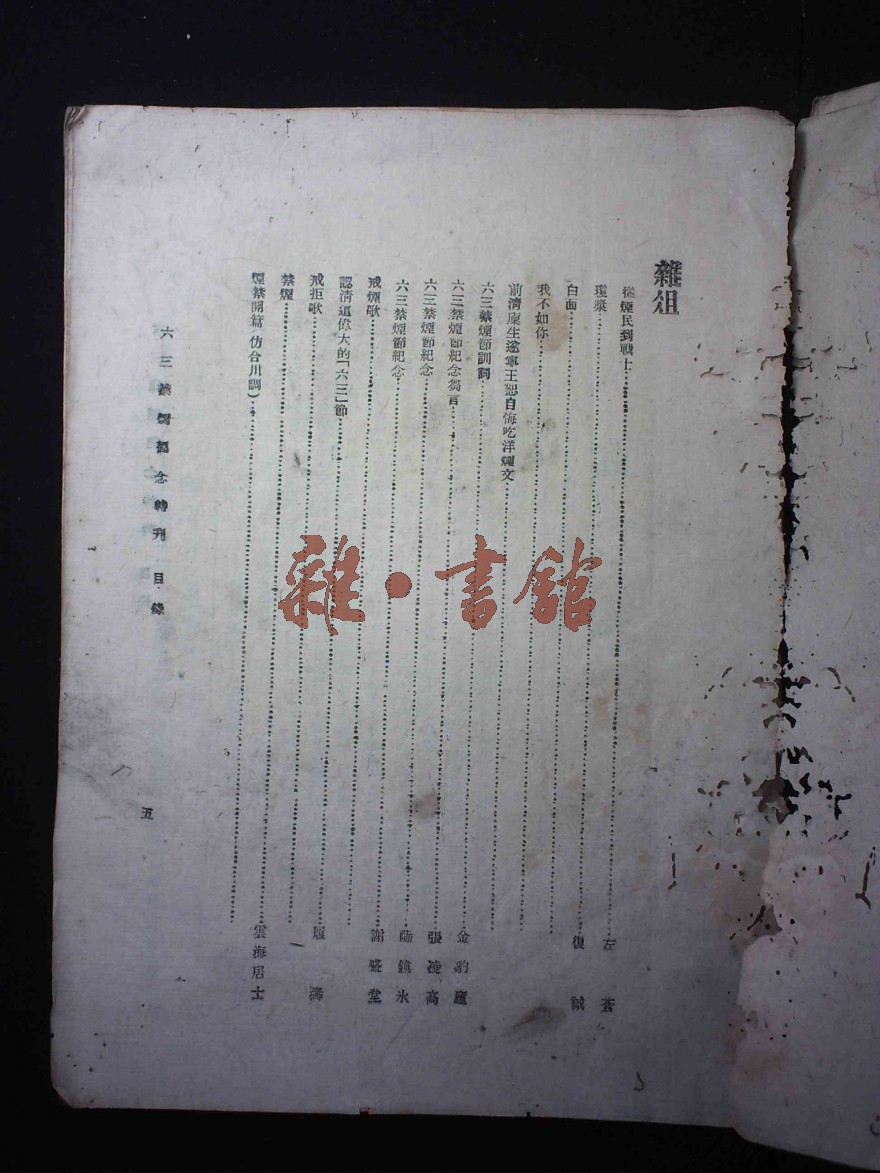 雜俎
從煙民到戰士 左蒼
瓊漿
白面 復
我不如你
前清廩生遂寧王恕自悔吃洋煙文
六三禁煙節訓詞
六三禁煙節紀念芻言 金豹廬
六三禁煙節紀念 張凌高
六三禁煙節紀念 鏡氷
戒煙歌 謝盛堂
認清這偉大的「六三」節
戒拒歌
禁煙
煙禁開篇(仿合川調) 雲海居士
六三禁煙紀念特刊 目錄
五
雜·書館